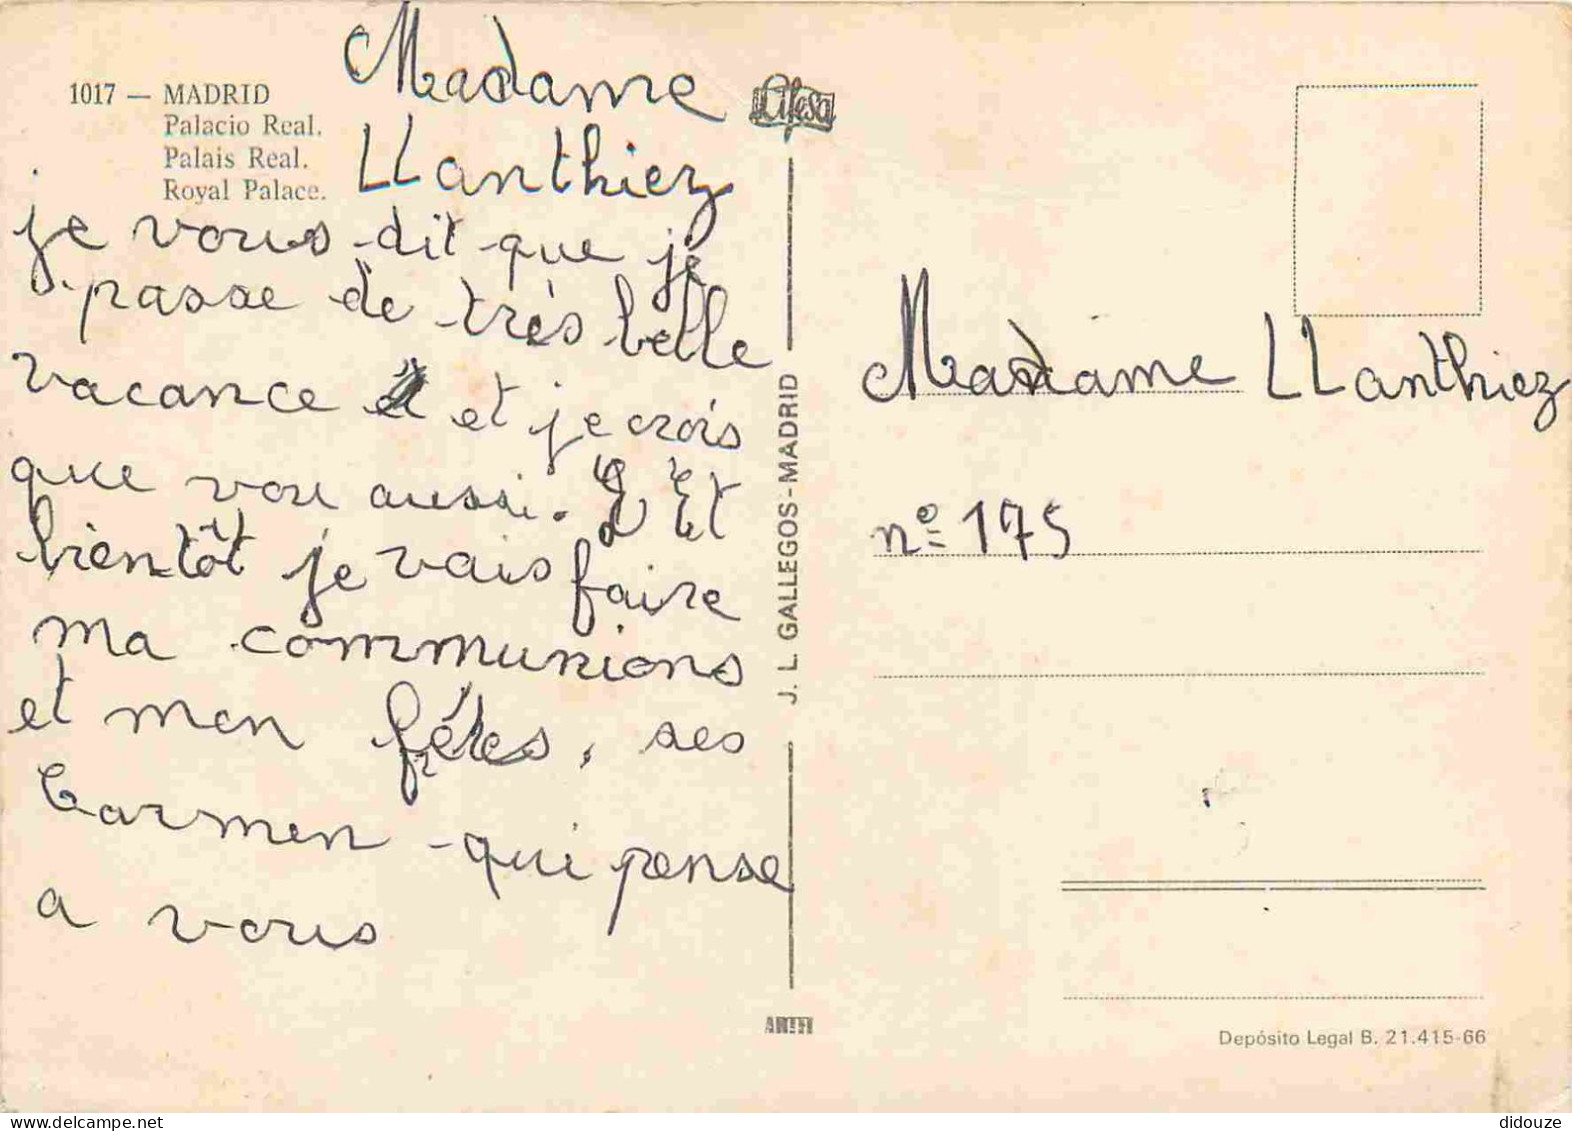 Madame
1017 — MADRID
Palacio Real.
Palais Real.
Royal Palace.
LLanthiez
je vous dit que je
passe de très belle
vacance et je crois
que vou aussi. Et
bientôt je vais faire
ma communions
et mon fêtes, ses
Carmen qui pense
a vous
J. L. GALLEGOS-MADRID
ARTFI
Madame LLanthiez
nº 175
Depósito Legal B. 21.415-66
didouze